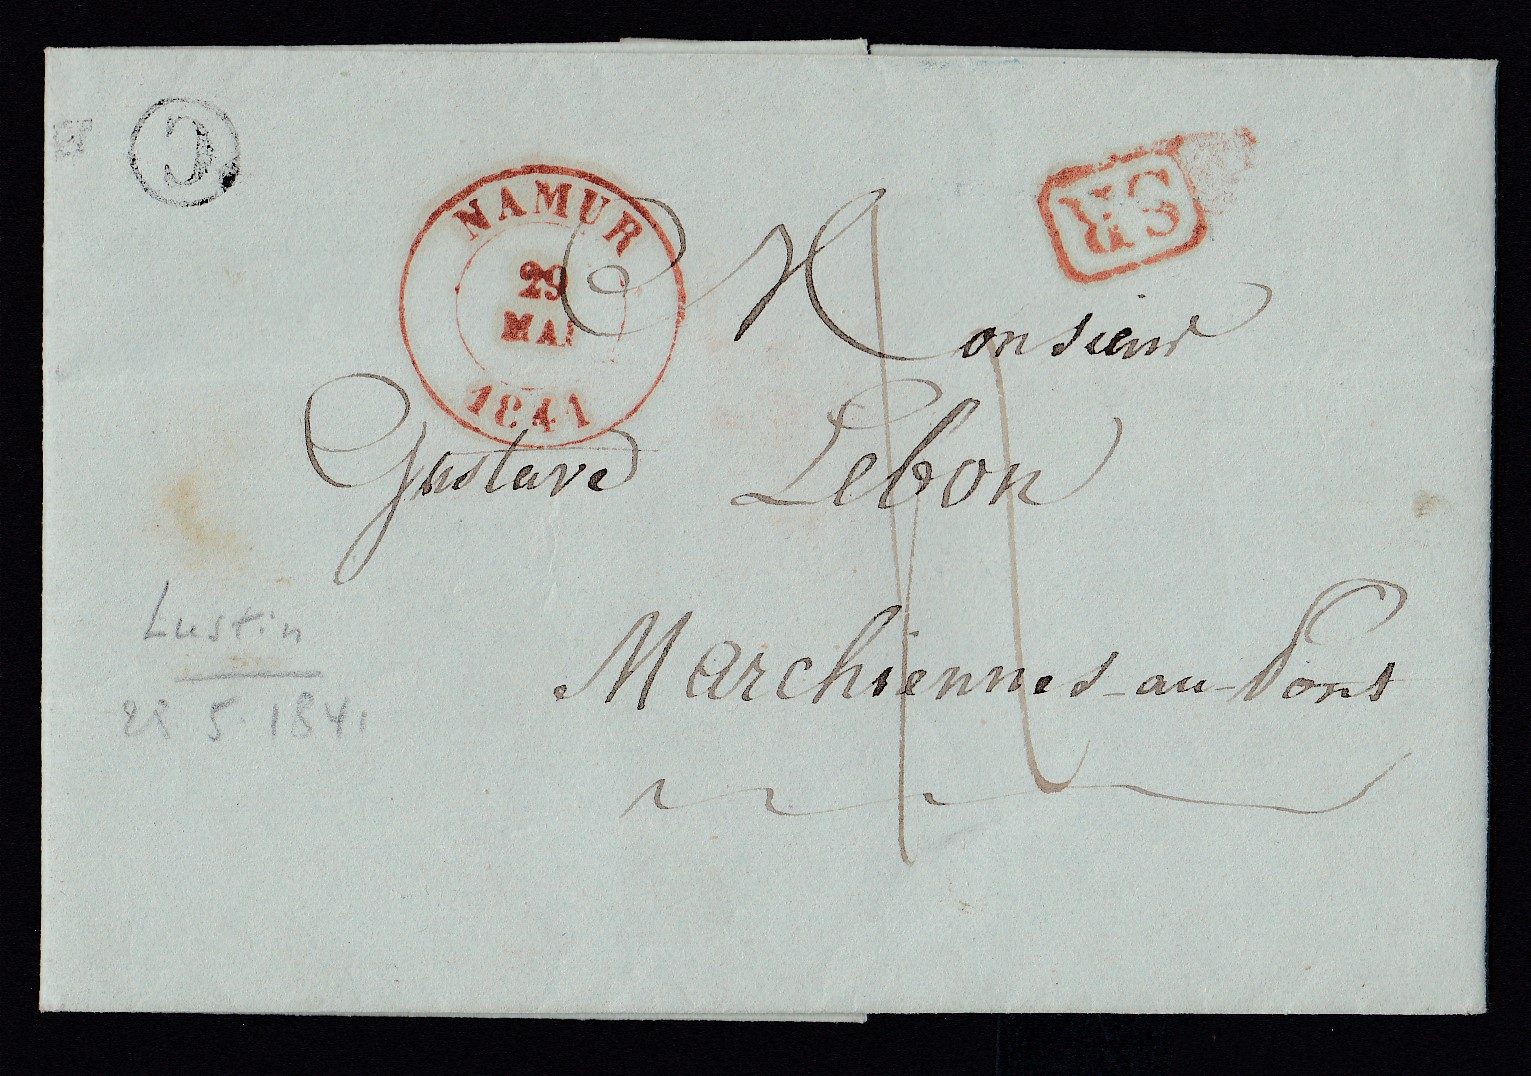 C
NAMUR
29
MAI
1841
SR
A Monsieur
Gustave Lebon
Marchiennes-au-Pont
Lustin
28 5. 1841